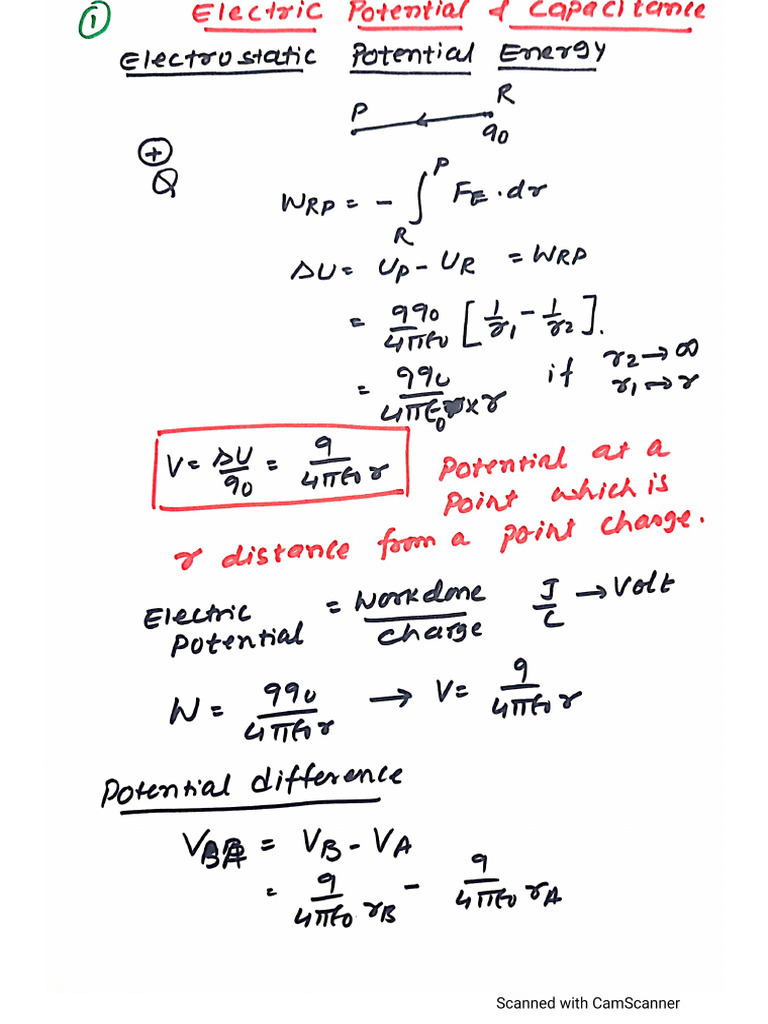 1
Electric Potential & Capacitance
Electrostatic Potential Energy
P R
q0
+
Q
W_RP = - ∫_R^P F_E . dr
ΔU = U_P - U_R = W_RP
= qq0/4πε0 [1/r1 - 1/r2].
= qq0/4πε0 × r if r2→∞ r1→r
V = ΔU/q0 = q/4πε0 r Potential at a
Point which is
r distance from a point charge.
Electric Potential = Work done/charge J/C → Volt
W = qq0/4πε0 r → V = q/4πε0 r
Potential difference
V_BA = V_B - V_A
= q/4πε0 r_B - q/4πε0 r_A
Scanned with CamScanner